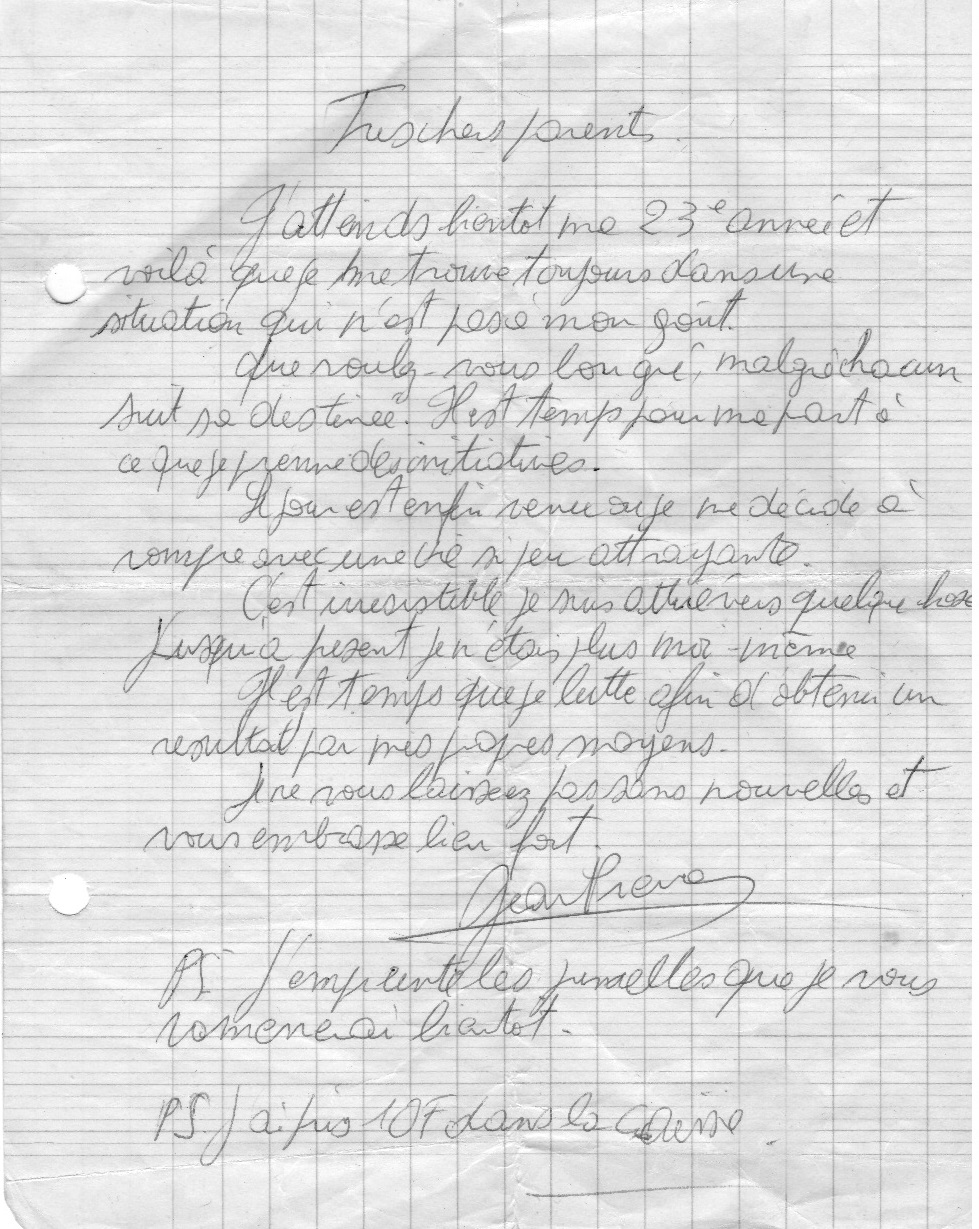 Très chers parents.
J'attends bientot ma 23e année et
voilà que je me trouve toujours dans une
situation qui n'est pas à mon goût.
Que voulez-vous bon gré, malgré chacun
suit sa destinée. Il est temps pour ma part à
ce que je prenne des initiatives.
Le jour est enfin venu ou je me décide à
rompre avec une vie si peu attrayante.
C'est irresistible je suis attiré vers quelque chose
Jusqu'à présent je n'étais plus moi-même
Il est temps que je lutte afin d'obtenir un
resultat par mes propres moyens.
Je ne vous laisserez pas sans nouvelles et
vous embrasse bien fort.
Jean Pierre
PS J'emprunte les jumelles que je vous
ramenerai bientot.
PS. J'ai pris 10F dans la caisse.